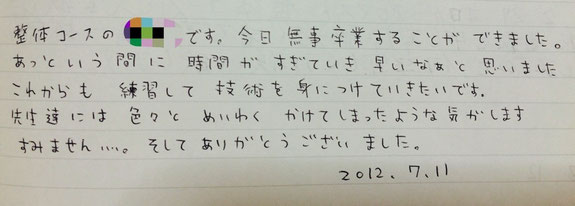 整体コースの です。今日 無事卒業することが できました。
あっという間に 時間が すぎていき 早いなぁと 思いました
これからも 練習して 技術を身につけていきたいです。
先生達には 色々と めいわく かけてしまったような気がします
すみません……。そして ありがとうござい ました。
2012. 7. 11